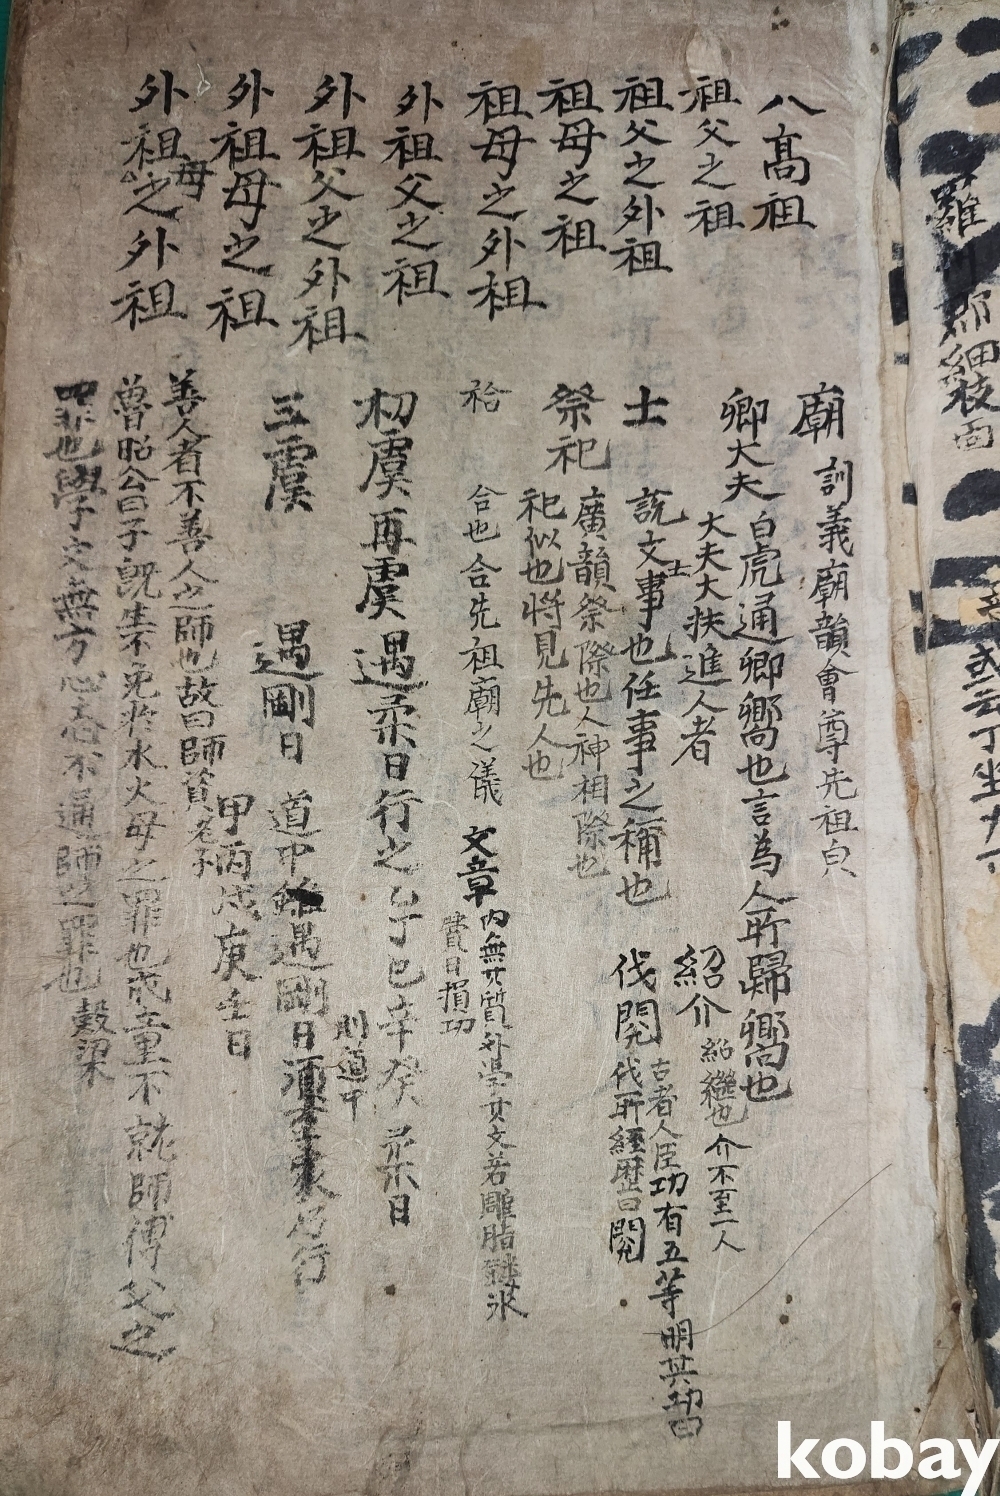 八高祖
祖父之祖
祖父之外祖
祖母之祖
祖母之外祖
外祖父之祖
外祖父之外祖
外祖母之祖
外祖母之外祖
廟 訓義廟韻會尊先祖皃
卿大夫 白虎通卿嚮也言為人所歸嚮也
大夫大扶進人者
紹介 紹繼也 介不至一人
士 說文士事也任事之稱也
伐閱 古者人臣功有五等明其功曰
伐所經歷曰閱
祭祀 廣韻祭際也人神相際也
祀似也將見先人也
祫 合也合先祖廟之儀
文章 內無其質外學其文若雕脂鏤氷
費日損功
初虞再虞遇柔日行之乙丁巳辛癸柔日
則道中
三虞 遇剛日 道中雖遇剛日須至家乃行
甲丙戊庚壬日
善人者不善人之師也故曰師資 老子
魯昭公曰子旣生不免於水火母之罪也成童不就師傅父之
罪也學文無方心志不通師之罪也 穀梁
羅 郡細枝面
或云丁坐
kobay